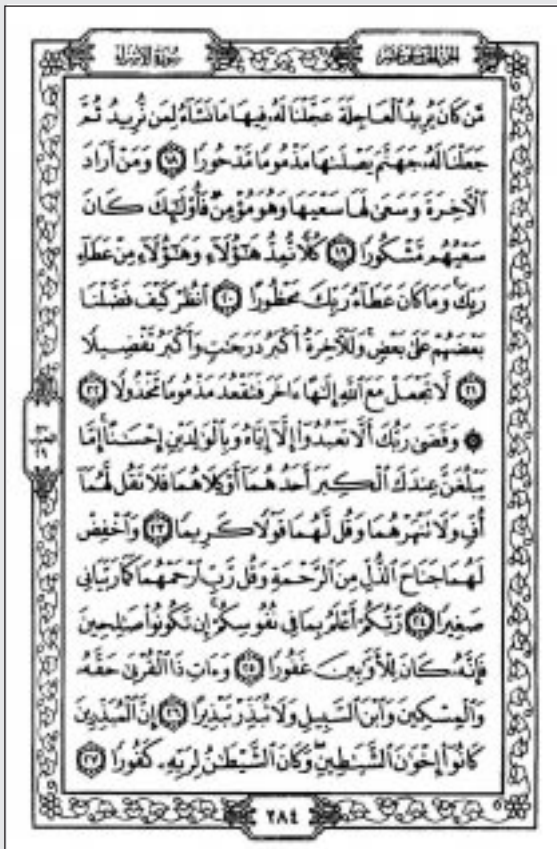 سُورَةُ الإِسۡرَاءِ
الجُزءُ الخَامِسَ عَشَرَ
مَّن كَانَ يُرِيدُ ٱلۡعَاجِلَةَ عَجَّلۡنَا لَهُۥ فِيهَا مَا نَشَآءُ لِمَن نُّرِيدُ ثُمَّ
جَعَلۡنَا لَهُۥ جَهَنَّمَ يَصۡلَىٰهَا مَذۡمُومٗا مَّدۡحُورٗا ١٨ وَمَنۡ أَرَادَ
ٱلۡأٓخِرَةَ وَسَعَىٰ لَهَا سَعۡيَهَا وَهُوَ مُؤۡمِنٞ فَأُوْلَٰٓئِكَ كَانَ
سَعۡيُهُم مَّشۡكُورٗا ١٩ كُلّٗا نُّمِدُّ هَٰٓؤُلَآءِ وَهَٰٓؤُلَآءِ مِنۡ عَطَآءِ
رَبِّكَۚ وَمَا كَانَ عَطَآءُ رَبِّكَ مَحۡظُورًا ٢٠ ٱنظُرۡ كَيۡفَ فَضَّلۡنَا
بَعۡضَهُمۡ عَلَىٰ بَعۡضٖۚ وَلَلۡأٓخِرَةُ أَكۡبَرُ دَرَجَٰتٖ وَأَكۡبَرُ تَفۡضِيلٗا
٢١ لَّا تَجۡعَلۡ مَعَ ٱللَّهِ إِلَٰهًا ءَاخَرَ فَتَقۡعُدَ مَذۡمُومٗا مَّخۡذُولٗا ٢٢
۞ وَقَضَىٰ رَبُّكَ أَلَّا تَعۡبُدُوٓاْ إِلَّآ إِيَّاهُ وَبِٱلۡوَٰلِدَيۡنِ إِحۡسَٰنًاۚ إِمَّا
يَبۡلُغَنَّ عِندَكَ ٱلۡكِبَرَ أَحَدُهُمَآ أَوۡ كِلَاهُمَا فَلَا تَقُل لَّهُمَآ
أُفّٖ وَلَا تَنۡهَرۡهُمَا وَقُل لَّهُمَا قَوۡلٗا كَرِيمٗا ٢٣ وَٱخۡفِضۡ
لَهُمَا جَنَاحَ ٱلذُّلِّ مِنَ ٱلرَّحۡمَةِ وَقُل رَّبِّ ٱرۡحَمۡهُمَا كَمَا رَبَّيَانِي
صَغِيرٗا ٢٤ رَّبُّكُمۡ أَعۡلَمُ بِمَا فِي نُفُوسِكُمۡۚ إِن تَكُونُواْ صَٰلِحِينَ
فَإِنَّهُۥ كَانَ لِلۡأَوَّٰبِينَ غَفُورٗا ٢٥ وَءَاتِ ذَا ٱلۡقُرۡبَىٰ حَقَّهُۥ
وَٱلۡمِسۡكِينَ وَٱبۡنَ ٱلسَّبِيلِ وَلَا تُبَذِّرۡ تَبۡذِيرًا ٢٦ إِنَّ ٱلۡمُبَذِّرِينَ
كَانُوٓاْ إِخۡوَٰنَ ٱلشَّيَٰطِينِۖ وَكَانَ ٱلشَّيۡطَٰنُ لِرَبِّهِۦ كَفُورٗا ٢٧
٢٨٤